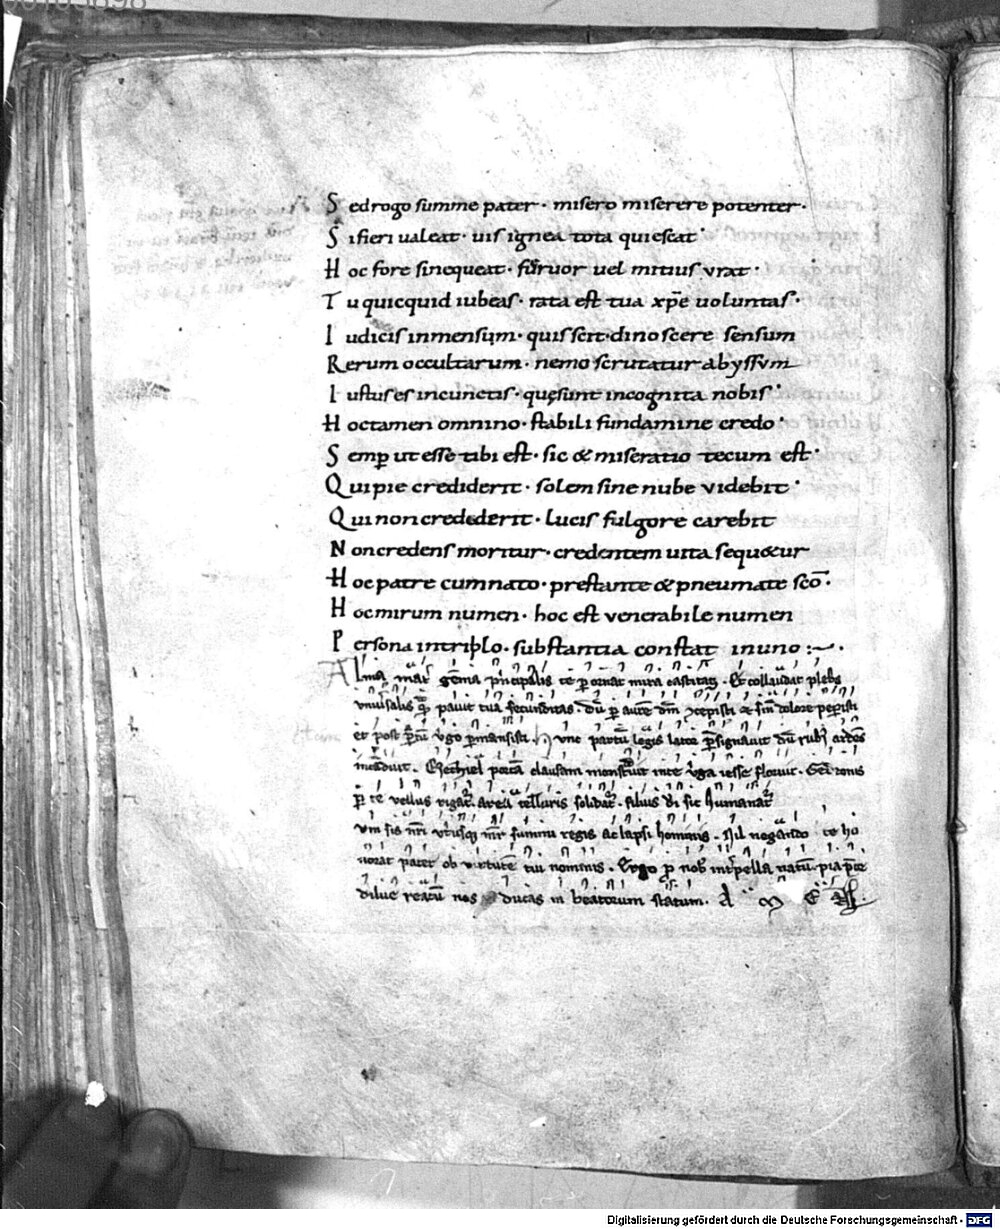 Sed rogo summe pater · misero miserere potenter ·
Si fieri ualeat · uis ignea tota quiescat ·
Hoc fore si nequeat · feruor uel mitius vrat ·
Tu quicquid iubeas · rata est tua xpe uoluntas ·
Iudicis inmensum · quis scit dinoscere sensum
Rerum occultarum · nemo scrutatur abyssvm
Iustus es in cunctis · quę sunt incognita nobis ·
Hoc tamen omnino · stabili fundamine credo ·
Semp ut esse tibi est · sic & miseratio tecum est ·
Qui pie crediderit · solem sine nube videbit ·
Qui non crediderit · lucis fulgore carebit
Non credens moritur · credentem uita sequ&ur
Hoc patre cum nato · prestante & pneumate sco ·
Hoc mirum numen · hoc est venerabile numen
Persona in triplo · substantia constat in uno :~ ·
Alma mat gēma pncipalis te pornat mira castitas · Et collaudat plebs
vniusalis q pauit tua fecunditas · dū p aurē dm ɔcepisti & sin dolore pepisti
et post ptū vgo pmansisti hunc partū legis lator psignauit dū rubi ardēs
Ezechiel portā clausam monstrauit inte vga iesse floruit · Gedeonis
p te vellus rigat area telluris solidat · filius di sic humanat
vm sis nri vtiusq mr summi regis ac lapsi hominis · Nil negando te ho
norat pater ob virtutē tui nominis · Ergo p nob intpella natū pia
dilue reatū nos ducas in beatorum statum · A m e
Digitalisierung gefördert durch die Deutsche Forschungsgemeinschaft - DFG